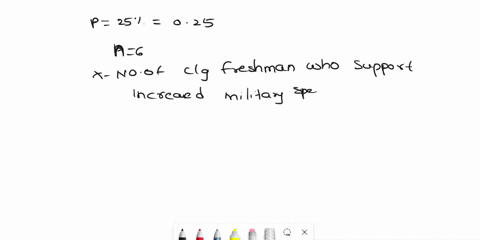 P = 25% = 0.25
n=6
x- No.of clg freshman who support
Increaed military spe